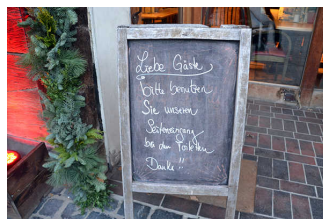 Liebe Gäste
bitte benutzen
Sie unseren
Seiteneingang
bei den Toiletten
Danke!!